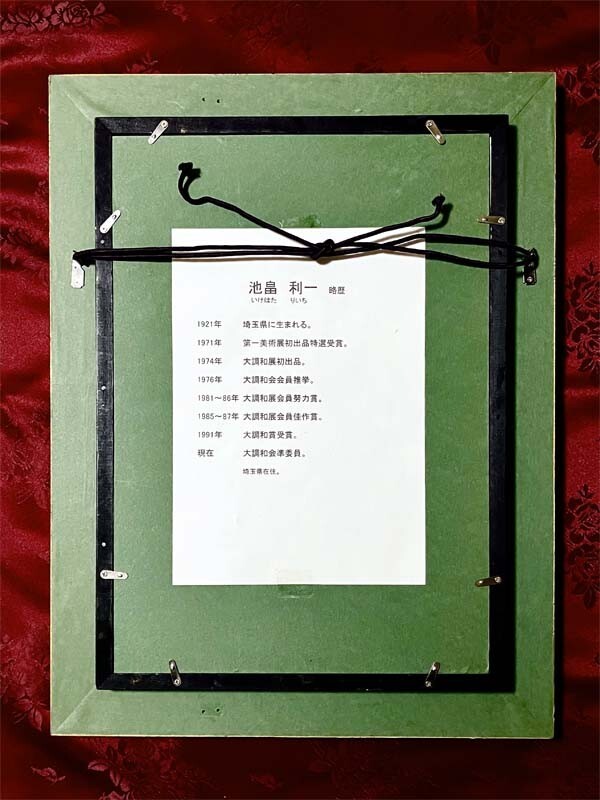 池畠 利一 略歴
いけはた りいち
1921年 埼玉県に生まれる。
1971年 第一美術展初出品特選受賞。
1974年 大調和展初出品。
1976年 大調和会会員推挙。
1981～86年 大調和展会員努力賞。
1985～87年 大調和展会員佳作賞。
1991年 大調和賞受賞。
現在 大調和会準委員。
埼玉県在住。